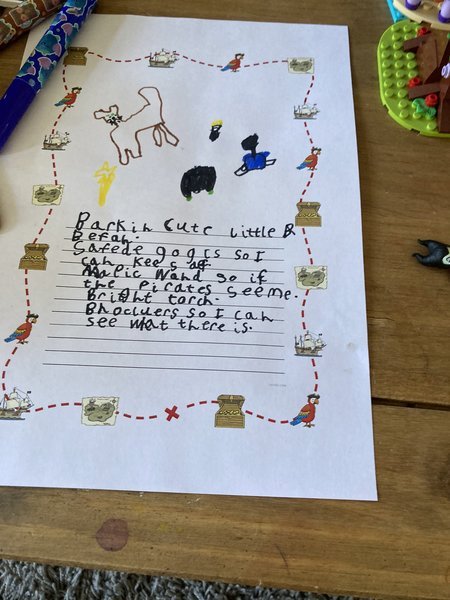 Barkin Cute little B
Befan
Safede gogls so I
can
Magic Wand so if
the pirates see me.
Bright torch.
Bhocluers so I can
see what there is.